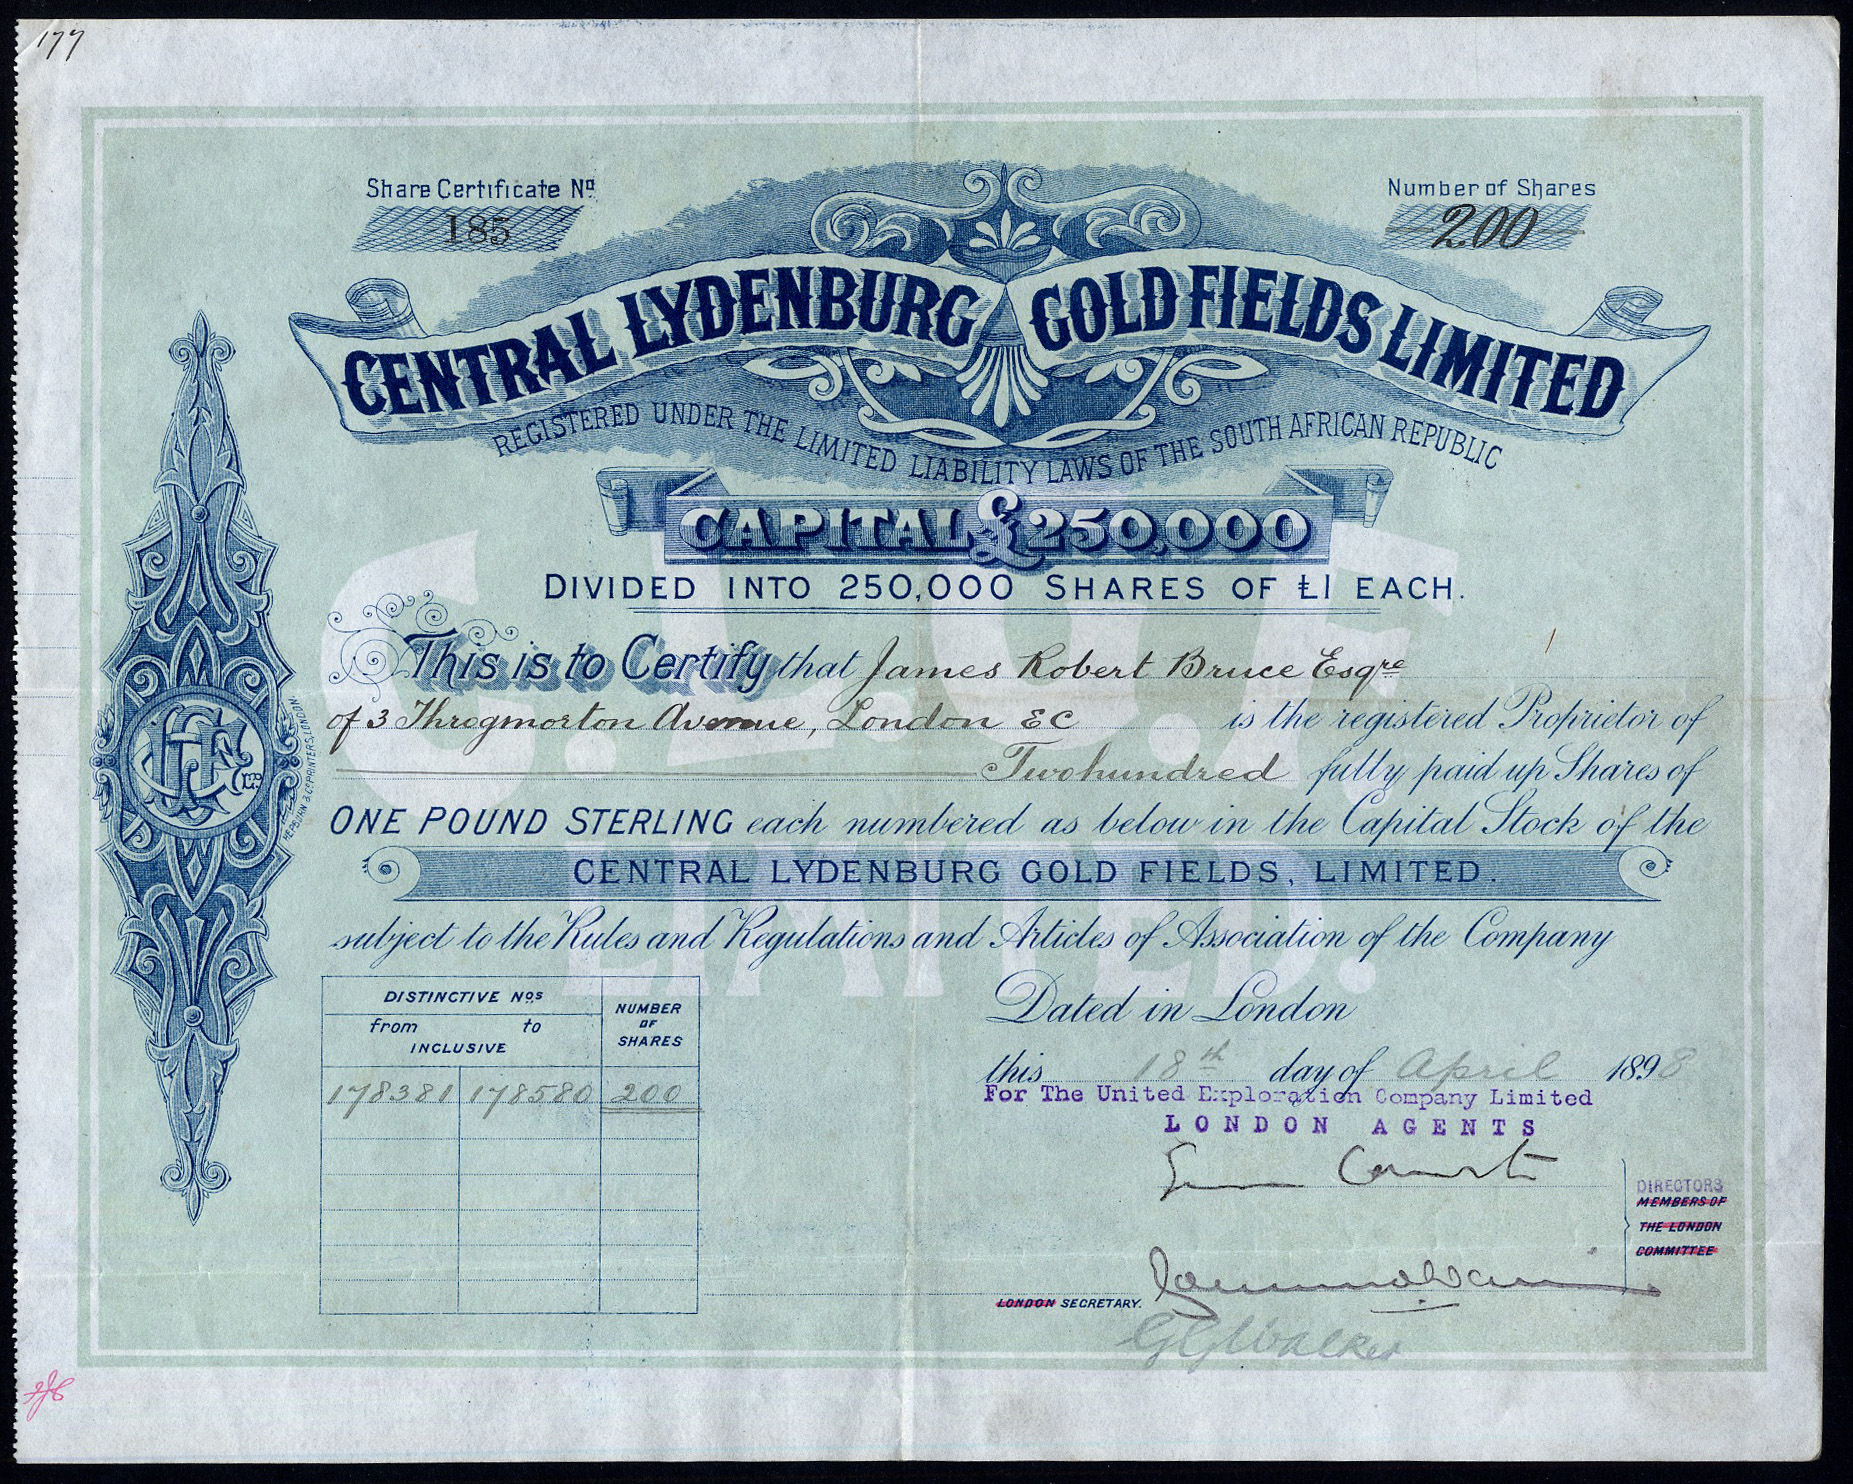 177
Share Certificate Nº
185
Number of Shares
200
CENTRAL LYDENBURG GOLD FIELDS LIMITED
REGISTERED UNDER THE LIMITED LIABILITY LAWS OF THE SOUTH AFRICAN REPUBLIC
CAPITAL £250,000
DIVIDED INTO 250,000 SHARES OF £1 EACH.
This is to Certify that James Robert Bruce Esqre
of 3 Throgmorton Avenue, London EC is the registered Proprietor of
Two hundred fully paid up Shares of
ONE POUND STERLING each numbered as below in the Capital Stock of the
CENTRAL LYDENBURG GOLD FIELDS, LIMITED.
subject to the Rules and Regulations and Articles of Association of the Company
C.L.G.F.
LIMITED.
& Co PRINTERS, LONDON
DISTINCTIVE Nos
from to
INCLUSIVE
NUMBER
OF
SHARES
178381 178580 200
Dated in London
this 18th day of April 1898
For The United Exploration Company Limited
LONDON AGENTS
DIRECTORS
MEMBERS OF
THE LONDON
COMMITTEE
LONDON SECRETARY.
G G Walker